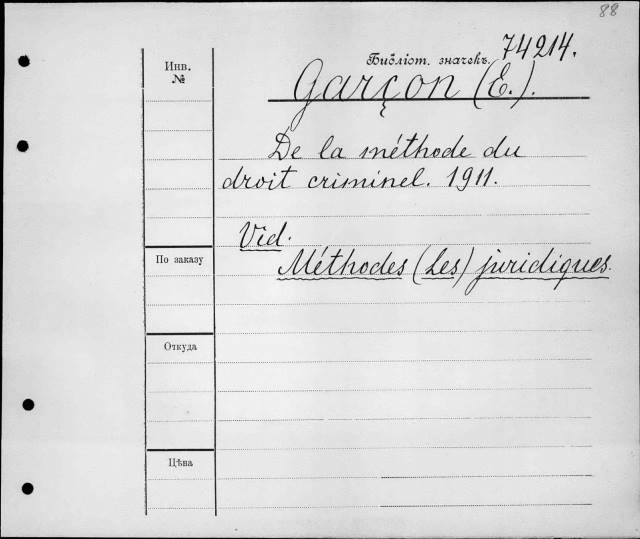 88
Библіот. значекъ. 74214.
Инв.
№
Garçon (E.).
De la méthode du
droit criminel. 1911.
Vid.
Méthodes (Les) juridiques.
По заказу
Откуда
Цѣна